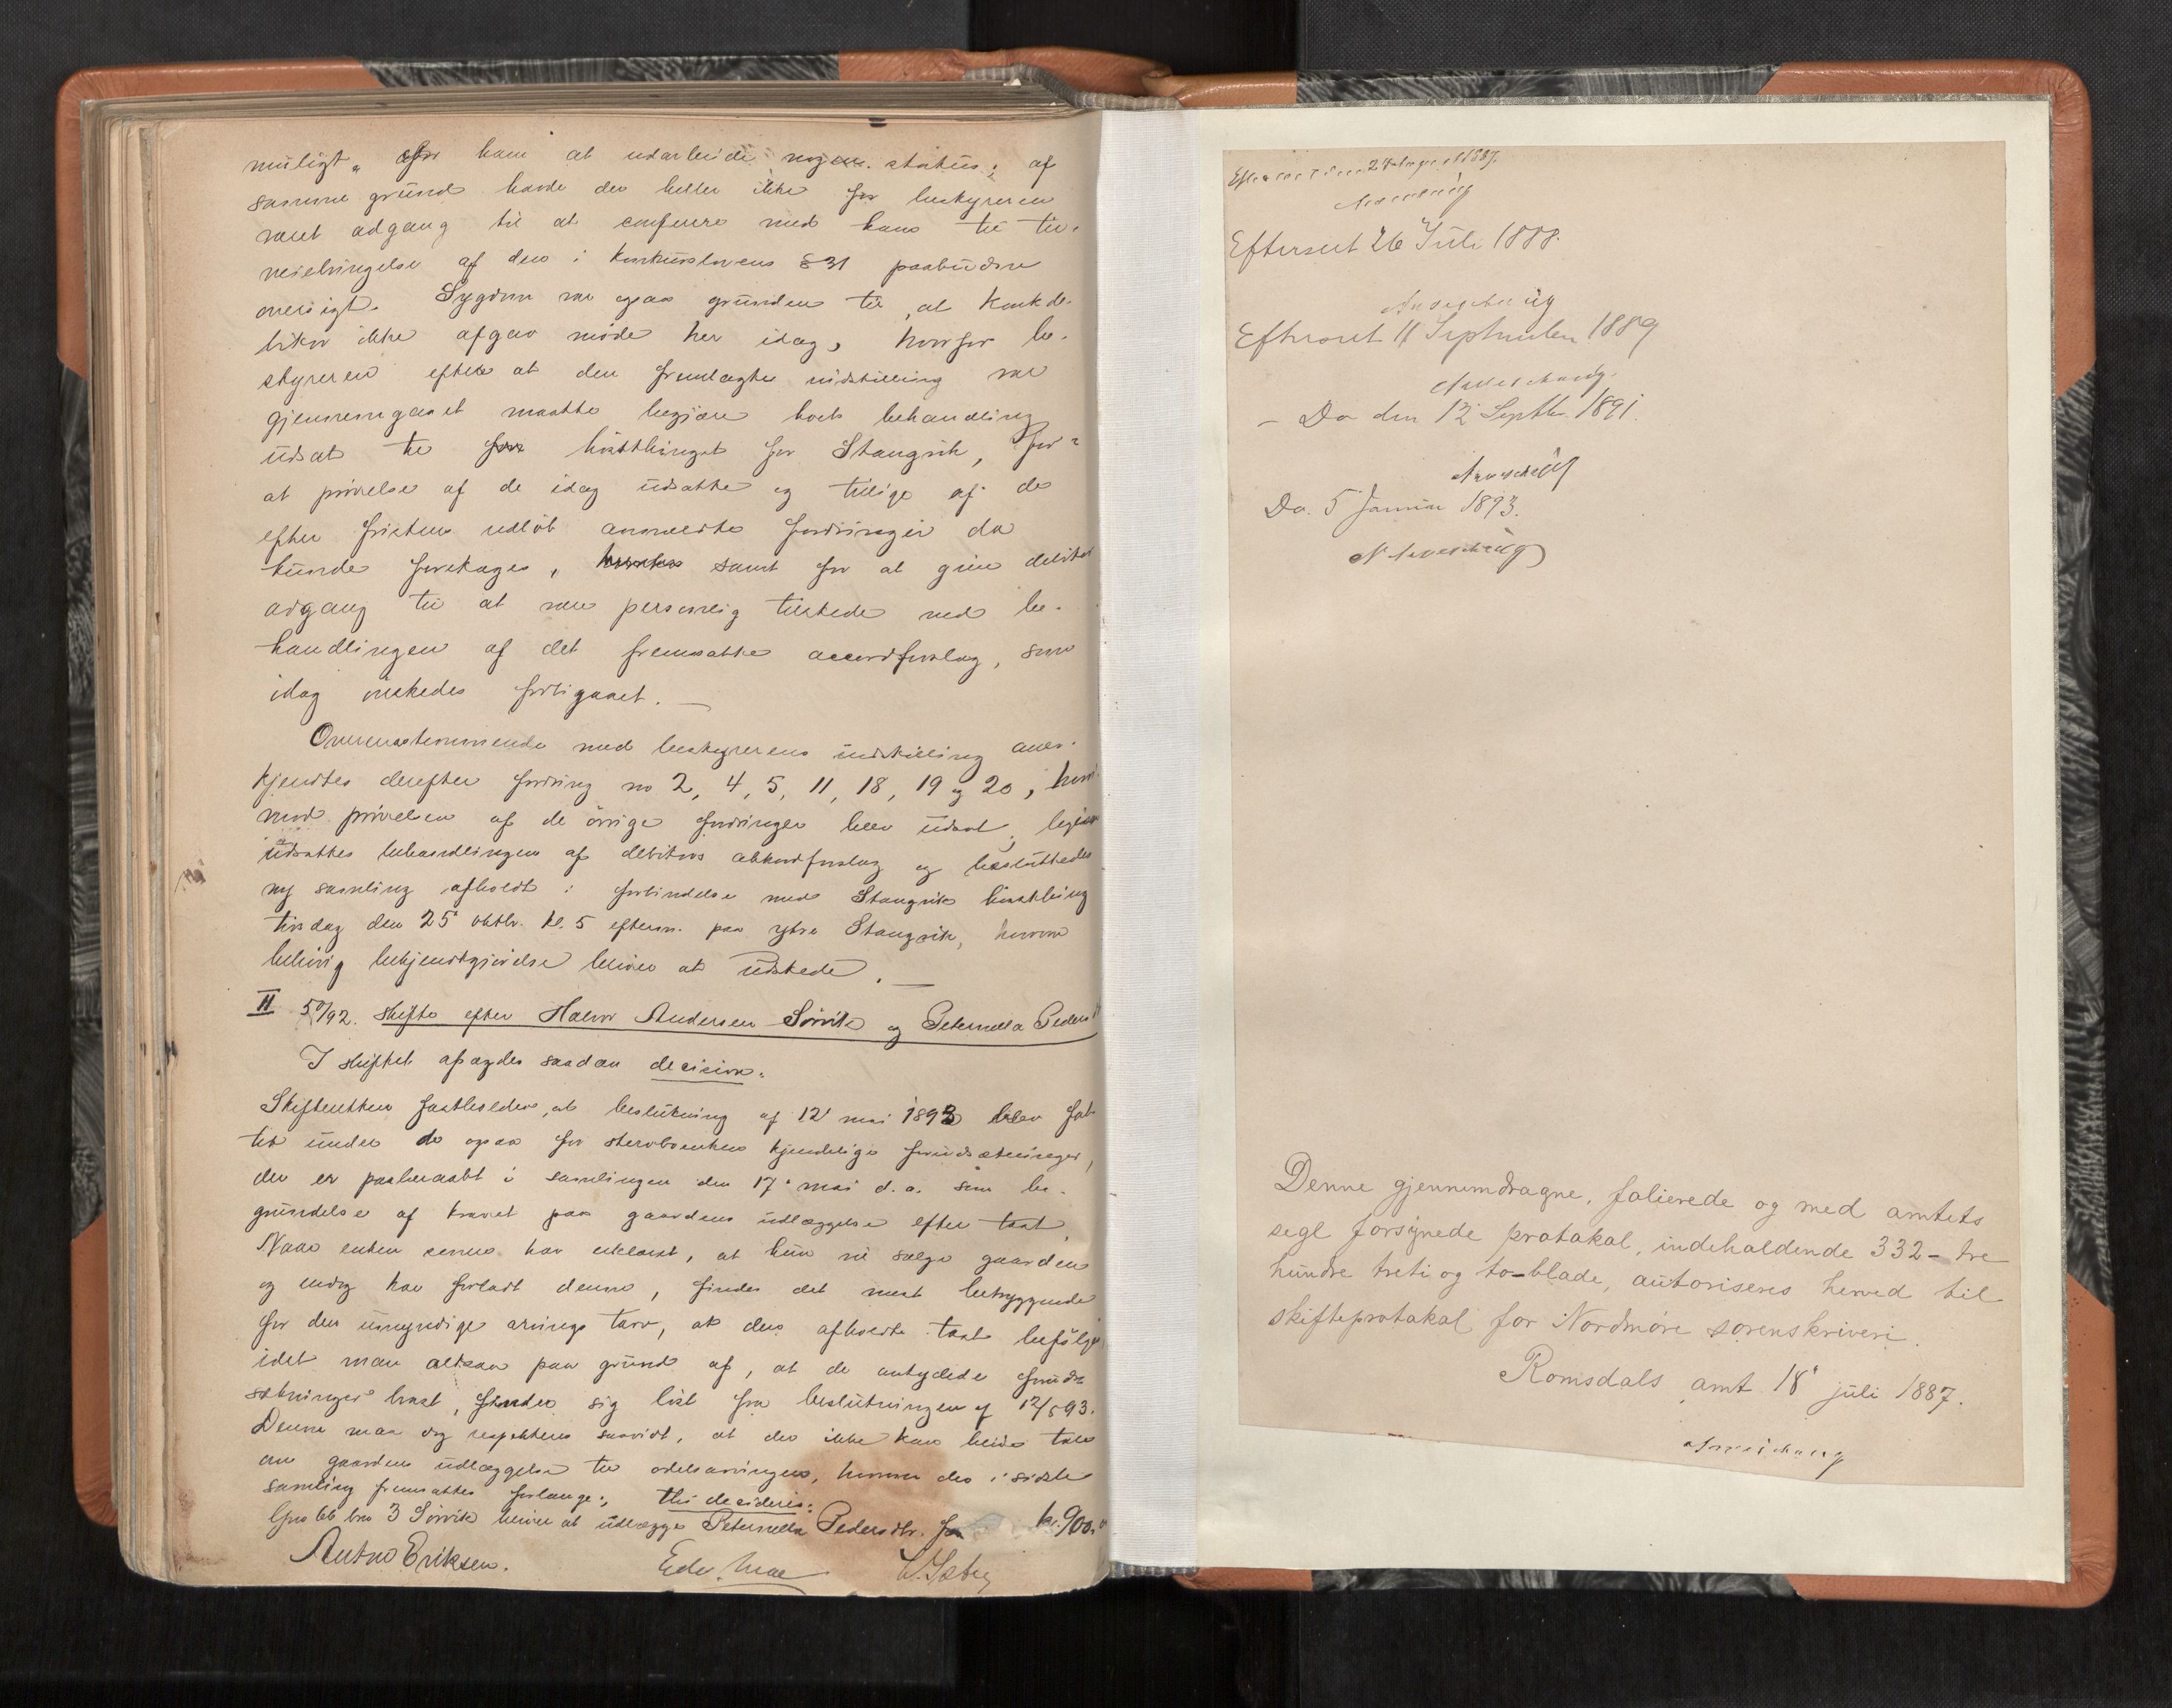 muligt for ham at udarbeide nogen status; af
samme grund havde der heller ikke for bestyreren
været adgang til at conferere med ham til til-
veiebringelse af den i konkurslovens § 31 paabudne
oversigt. Sygdom var ogsaa grunden til, at konk.de-
bitor ikke afgav møde her idag, hvorfor be-
styreren efter at den fremlagte indstilling var
gjennemgaaet maatte begjære boets behandling
udsat til høstthinget for Stangvik, for
at prøvelse af de idag udsatte og tillige af de
efter fristens udløb anmeldte fordringer da
kunde foretages, samt for at give debitor
adgang til at være personlig tilstede ved be-
handlingen af det fremsatte accordforslag, som
idag ønskedes forbigaaet. —
Overensstemmende med bestyrerens indstilling aner-
kjendtes derefter fordring no 2, 4, 5, 11, 18, 19 og 20, hvori-
mod prøvelsen af de øvrige fordringer blev udsat,
udsattes behandlingen af debitors akkordforslag og besluttedes
ny samling afholdt i forbindelse med Stangvik høstthing
tirsdag den 25' oktbr. kl. 5 efterm. paa ytre Stangvik, hvorom
behørig bekjendtgjørelse bliver at udstede. —
II 50/92. Skifte efter Halvor Andersen Sørvik og Peternella Pedersd
I skiftet afsagdes saadan decision:
Skifteretten fastholder, at beslutning af 12' mai 1893 blev fat-
tet under de ogsaa for stervboenken kjendelige forudsætninger,
der er paaberaabt i samlingen den 17' mai d. a. som be-
grundelse af kravet paa gaardens udlæggelse efter taxt.
Naar enken senere har erklæret, at hun vil sælge gaarden
og endog har forladt denne, findes det mest betryggende
for den umyndige arvings tarv, at den afholdte taxt befølges
idet man altsaa paa grund af, at de antydede forud-
sætninger brast, finder sig løst fra beslutningen af 12/5 93.
Denne maa dog respekteres saavidt, at der ikke kan blive tale
om gaardens udlæggelse til odelsarvingen, hvorom der i sidste
samling fremsattes forlange:, thi decideres:
Gno 66 bno 3 Sørvik bliver at udlægge Peternella Pedersdtr. for kr. 900,00
Anton Eriksen. Edv. Moe
Efterseet 26 Juli 1888.
Efterseet 11 September 1889
— Do den 12 Septbr. 1891.
Do. 5 Januar 1893.
Denne gjennemdragne, folierede og med amtets
segl forsynede protokol, indeholdende 332 – tre
hundre treti og to – blade, autoriseres herved til
skifteprotokol for Nordmøre sorenskriveri.
Romsdals amt 18' juli 1887.